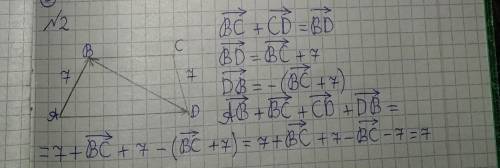 №2
B
C
7
7
A
D
BC⃗ + CD⃗ = BD⃗
BD⃗ = BC⃗ + 7
DB⃗ = -(BC⃗ + 7)
AB⃗ + BC⃗ + CD⃗ + DB⃗ =
= 7 + BC⃗ + 7 - (BC⃗ + 7) = 7 + BC⃗ + 7 - BC⃗ - 7 = 7